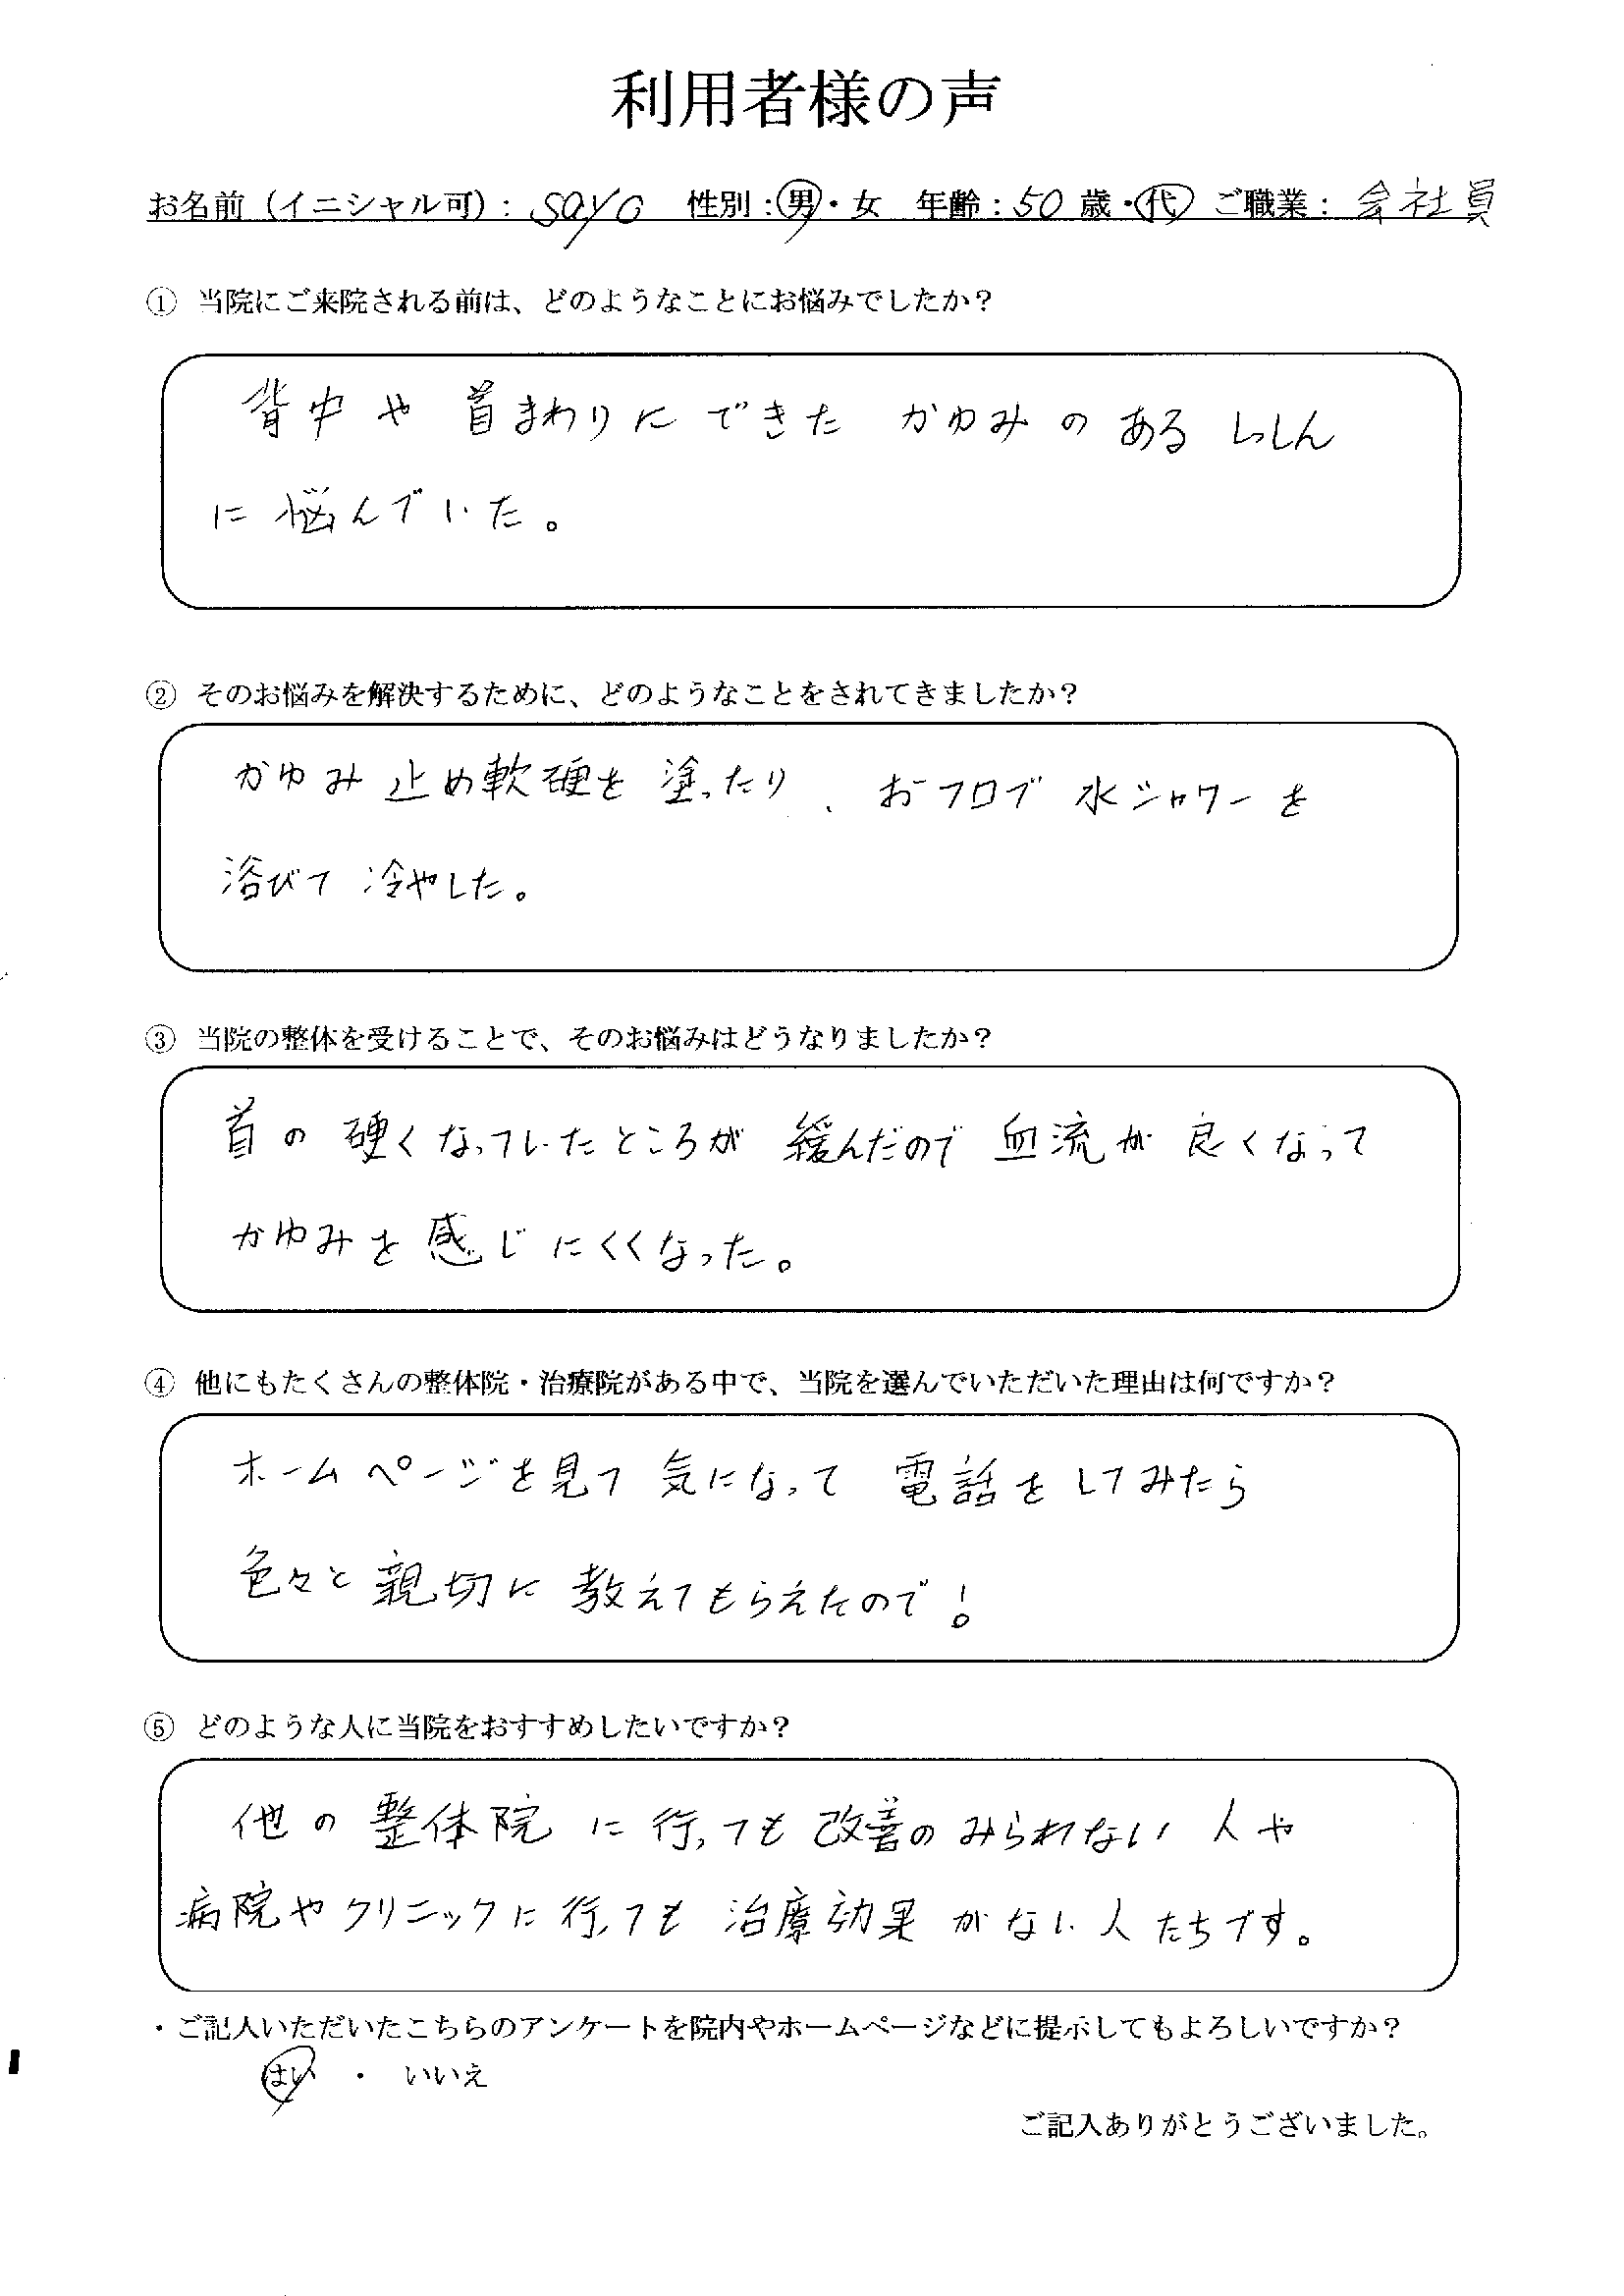 利用者様の声
お名前（イニシャル可）: sayo 性別:男・女 年齢:50 歳・代 ご職業: 会社員
① 当院にご来院される前は、どのようなことにお悩みでしたか？
背中や首まわりにできたかゆみのあるしっしん
に悩んでいた。
② そのお悩みを解決するために、どのようなことをされてきましたか？
かゆみ止め軟硬を塗ったり、おフロで水シャワーを
浴びて冷やした。
③ 当院の整体を受けることで、そのお悩みはどうなりましたか？
首の硬くなっていたところが緩んだので血流が良くなって
かゆみを感じにくくなった。
④ 他にもたくさんの整体院・治療院がある中で、当院を選んでいただいた理由は何ですか？
ホームページを見て気になって電話をしてみたら
色々と親切に教えてもらえたので！
⑤ どのような人に当院をおすすめしたいですか？
他の整体院に行っても改善のみられない人や
病院やクリニックに行っても治療効果がない人たちです。
・ご記入いただいたこちらのアンケートを院内やホームページなどに提示してもよろしいですか？
はい ・ いいえ
ご記入ありがとうございました。